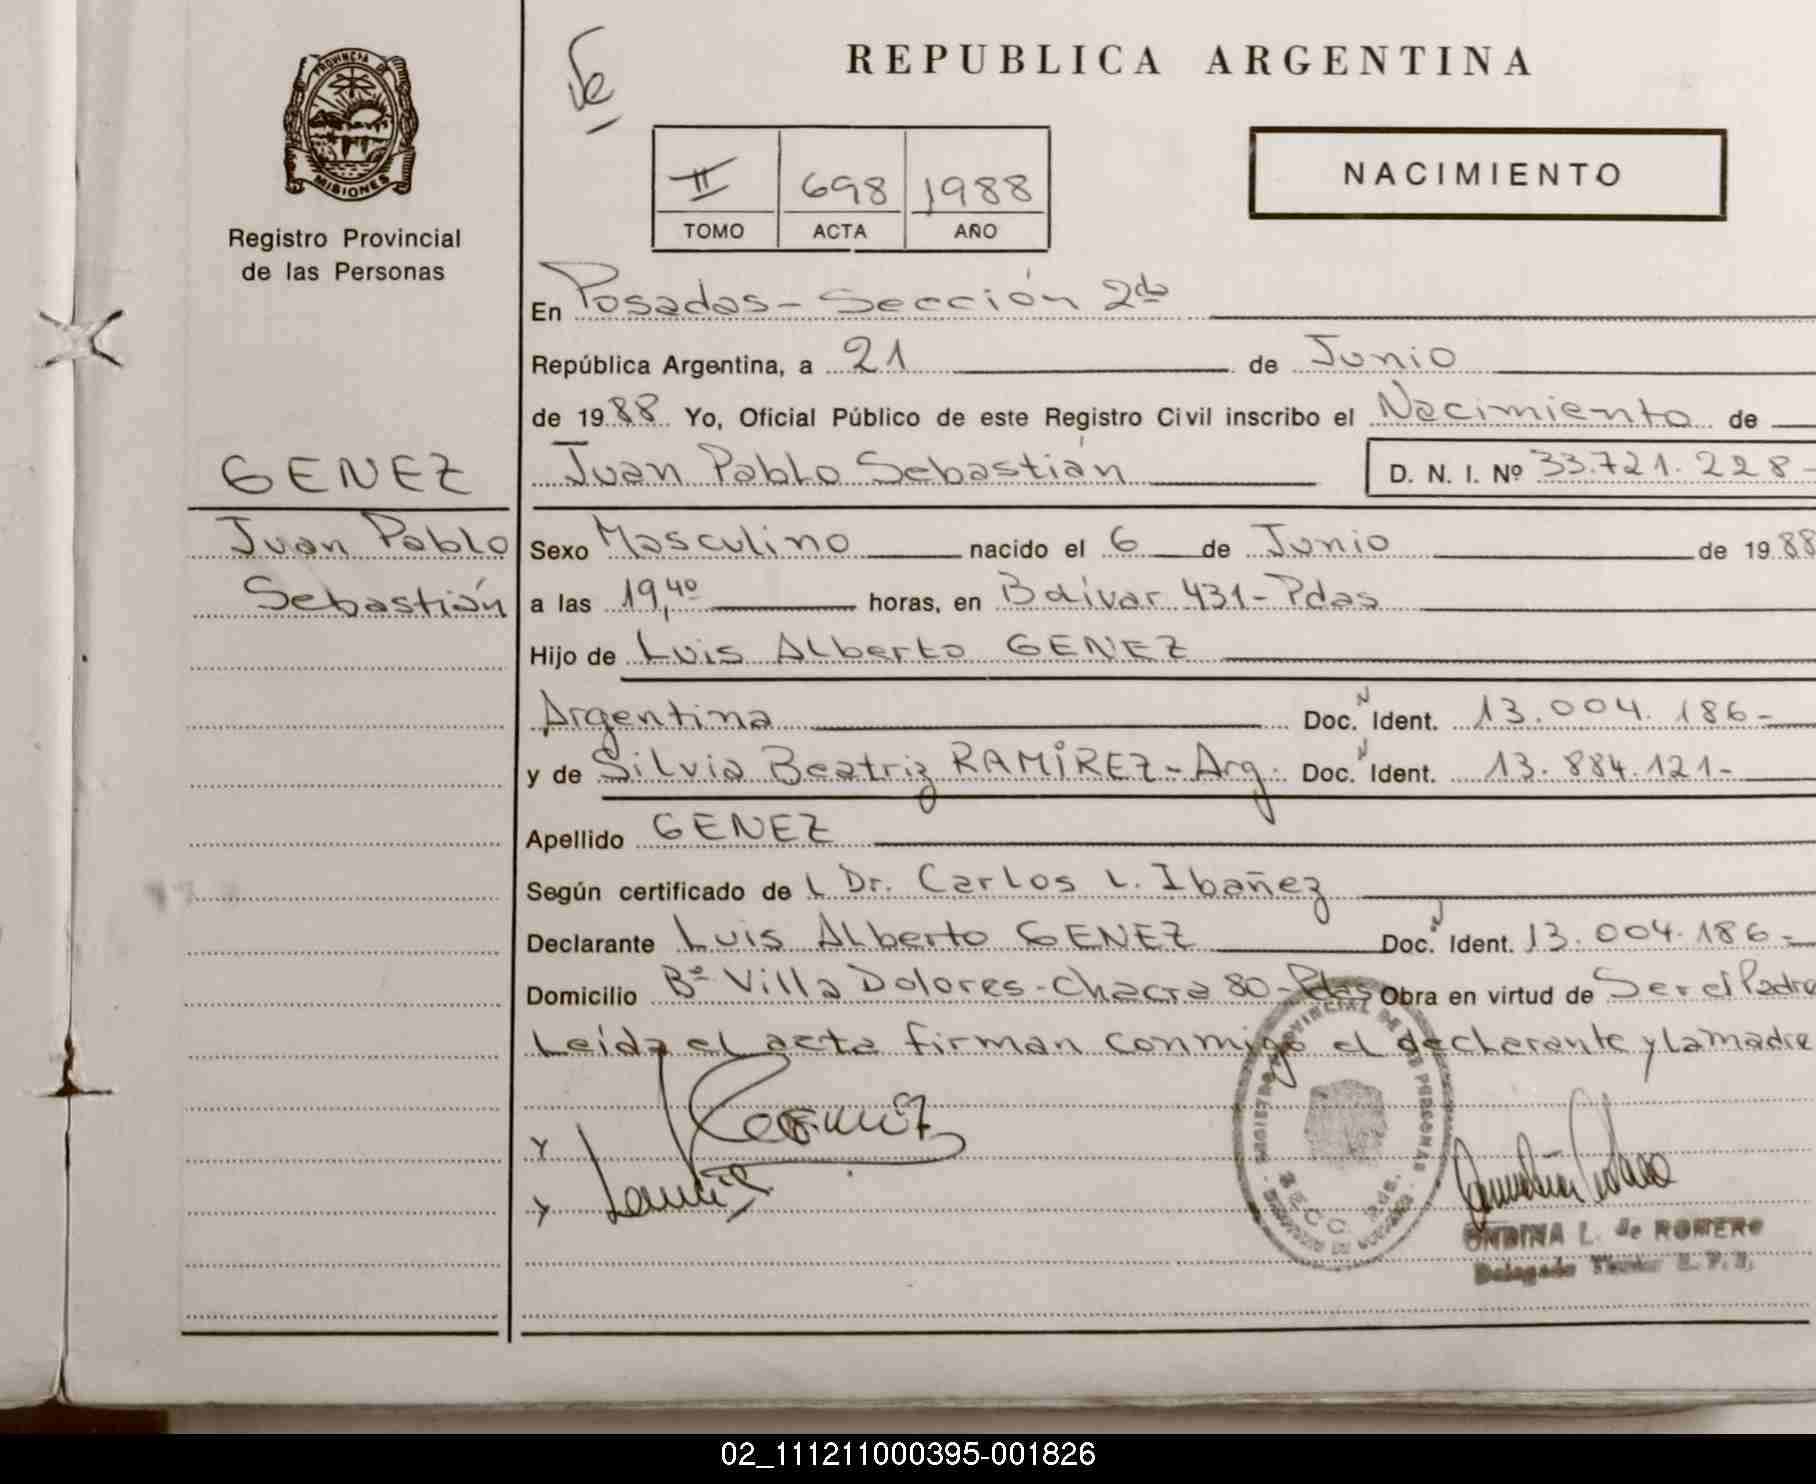 PROVINCIA DE
MISIONES
Registro Provincial
de las Personas
REPUBLICA ARGENTINA
NACIMIENTO
II 698 1988
TOMO ACTA AÑO
En Posadas - Sección 2da
República Argentina, a 21 de Junio
de 1988 Yo, Oficial Público de este Registro Civil inscribo el Nacimiento de
GENEZ
Juan Pablo Sebastián D. N. I. Nº 33.721.228-
Juan Pablo
Sebastián
Sexo Masculino nacido el 6 de Junio de 1988
a las 19,40 horas, en Bolívar 431- Pdas
Hijo de Luis Alberto GENEZ
Argentina Doc. N Ident. 13.004.186-
y de Silvia Beatriz RAMÍREZ - Arg. Doc. N Ident. 13.884.121-
Apellido GENEZ
Según certificado de L Dr. Carlos L. Ibañez
Declarante Luis Alberto GENEZ Doc. N Ident. 13.004.186-
Domicilio Bº Villa Dolores - Chacra 80 - Pdas Obra en virtud de Ser el Padre
Leída el acta firman conmigo el declarante y la madre
ONDINA L. de ROMERO
02_111211000395-001826